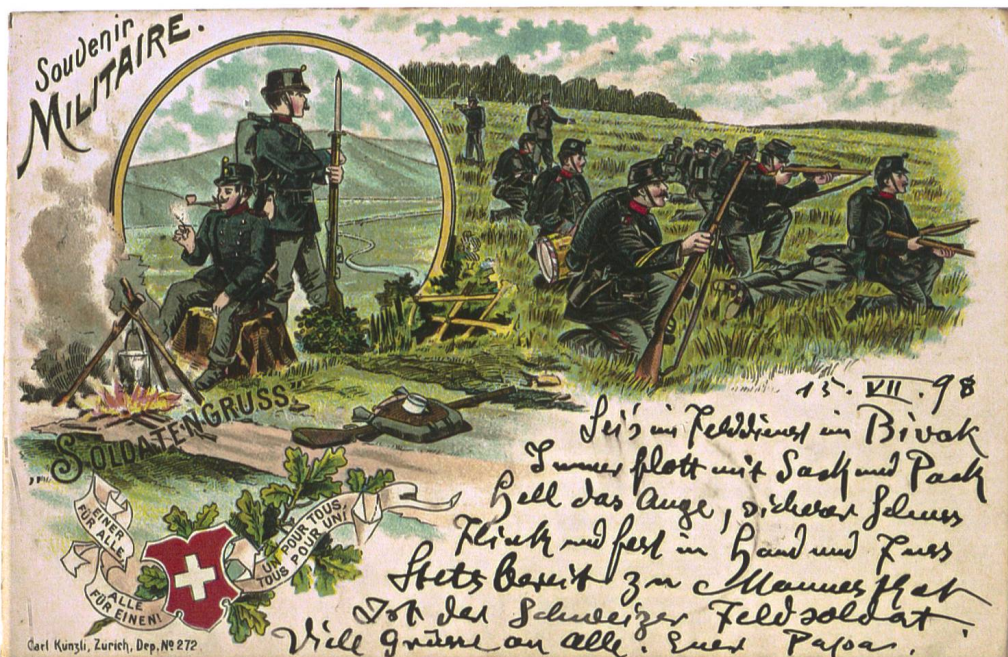 Souvenir
MILITAIRE.
„SOLDATENGRUSS."
EINER
FÜR ALLE,
ALLE
FÜR EINEN!
UN POUR TOUS,
TOUS POUR UN!
Carl Künzli, Zürich, Dep. No 272
15. VII. 98
Sei's im Felddienst im Bivak
Immer flott mit Sack und Pack
Hell das Auge, sicherer Schuss
Flink und fest in Hand und Fuss
Stets bereit zu Mannesthat
Ist der Schweizer Feldsoldat.
Viele Grüsse an Alle. Euer Papa.